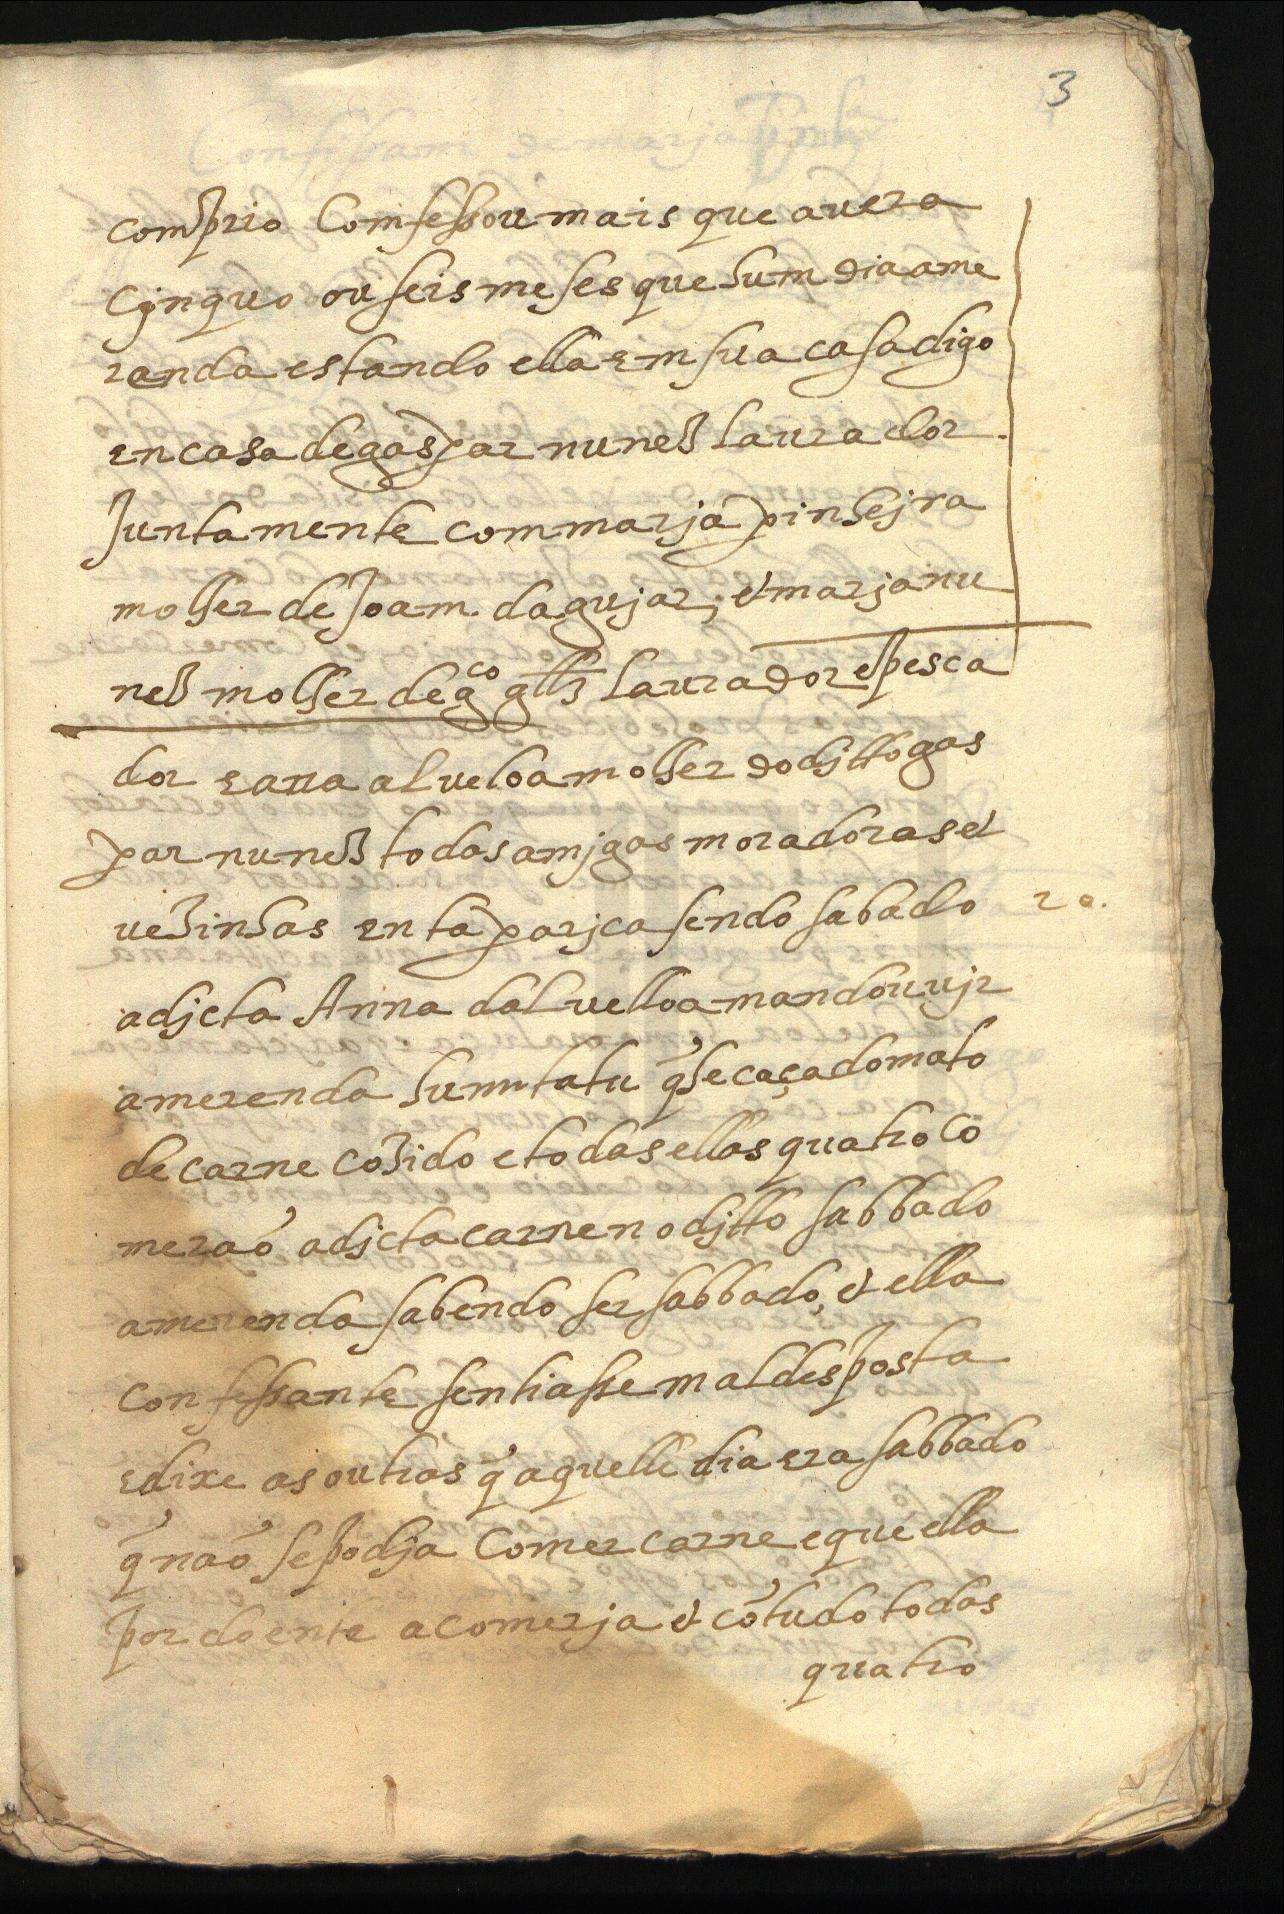 3
comprio Comfessou mais que avera
Cynquo ou seis meses que hum dia ame
randa estando ella em sua casa digo
en casa de gaspar nunez lavrador.
Juntamente com marja pinhejra
molher de Joam. dagujar, et marja nu
nez molher de gco glz lavrador e pesca
dor e anna alveloa molher do djtto gas
par nunez todas amjgas moradoras et
vezinhas en taparjca sendo sabado
2 a.
a djcta Anna dalvelloa mandou vjr
a merenda hum tatu q̃ he caça do mato
de carne cozido e todas ellas quatro cõ
meraõ a djcta carne no djtto sabbado
a merenda sabendo ser sabbado, et ella
confessante sentiasse mal desposta
e dixe as outras q̃ aquelle dia era sabbado
q̃ naõ se podja Comer carne e que ella
por doente a comerja et cõ tudo todas
quatro